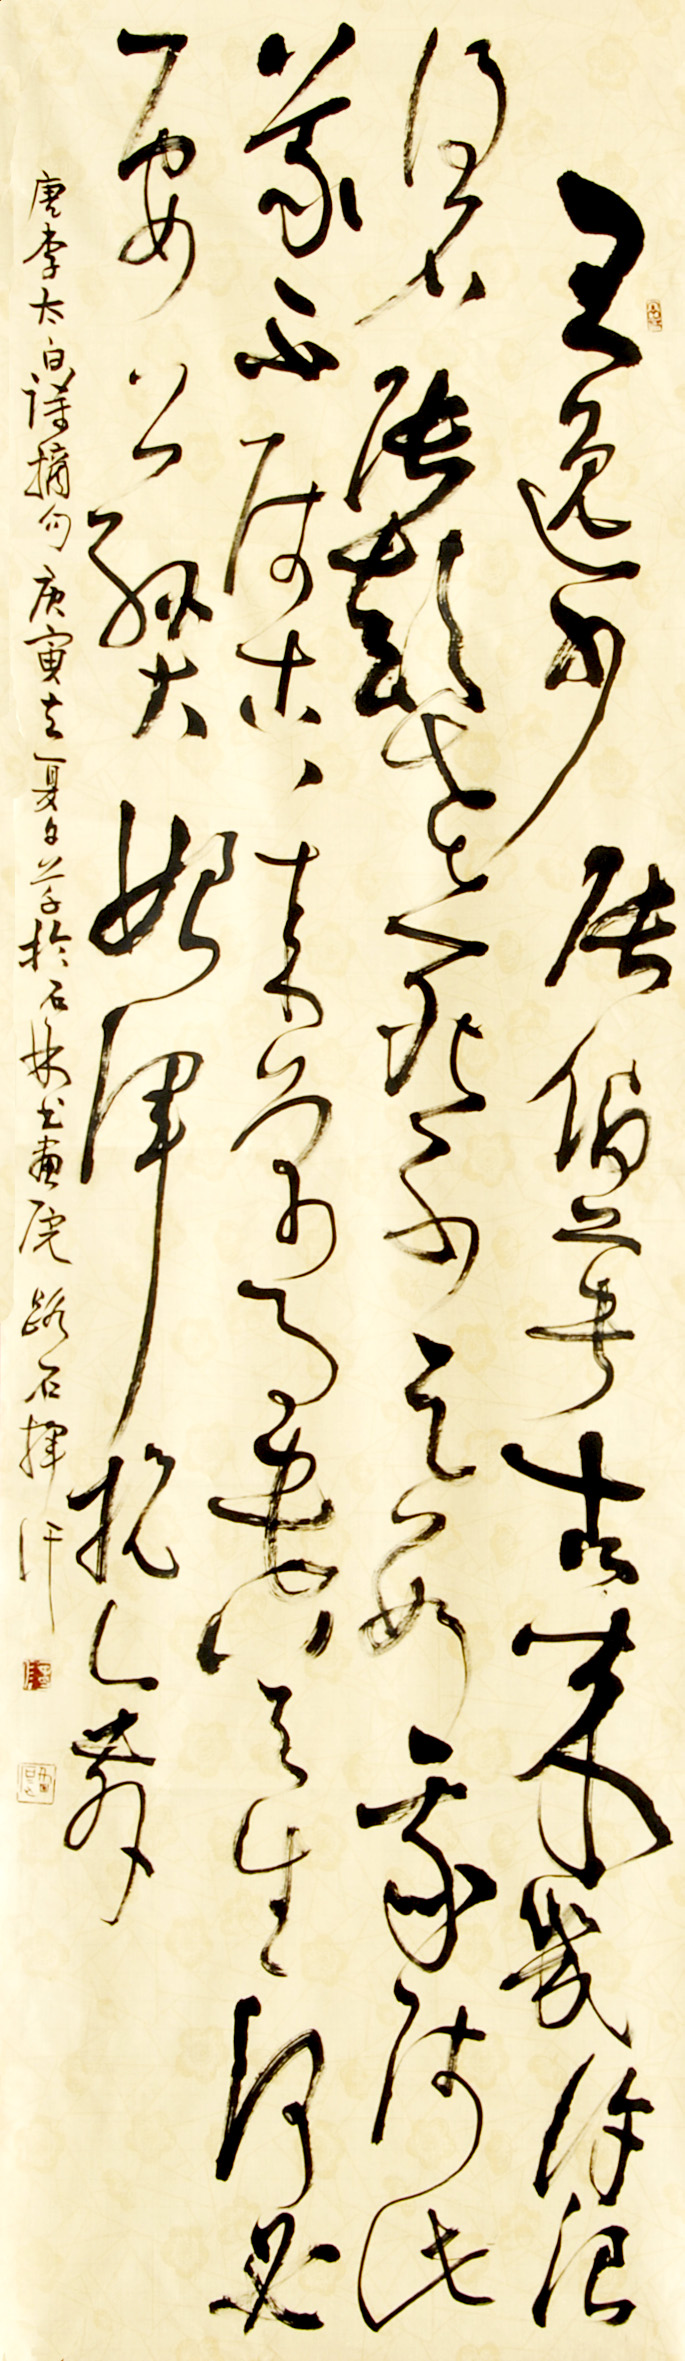 王逸少張伯英古來幾許浪
得名張顛老死不足數我師此
義不師古、來萬事貴天生何必
要公孫大娘渾脫舞
唐李太白詩摘句庚寅夏日草於石书畫院路石揮汗